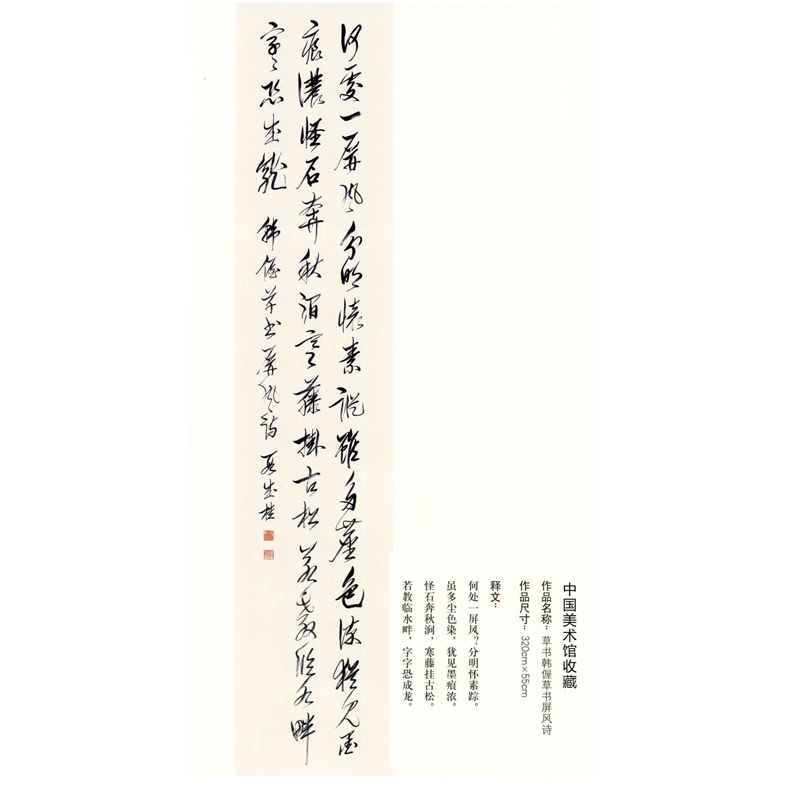 何處一屏風分明懷素踪雖多塵色染猶見墨
痕濃怪石奔秋澗寒藤掛古松若教臨水畔
字々恐成龍 韩偓草书屏風诗 段成桂
中国美术馆收藏
作品名称：草书韩偓草书屏风诗
作品尺寸：320cm×55cm
释文：
何处一屏风？分明怀素踪。
虽多尘色染，犹见墨痕浓。
怪石奔秋涧，寒藤挂古松。
若教临水畔，字字恐成龙。